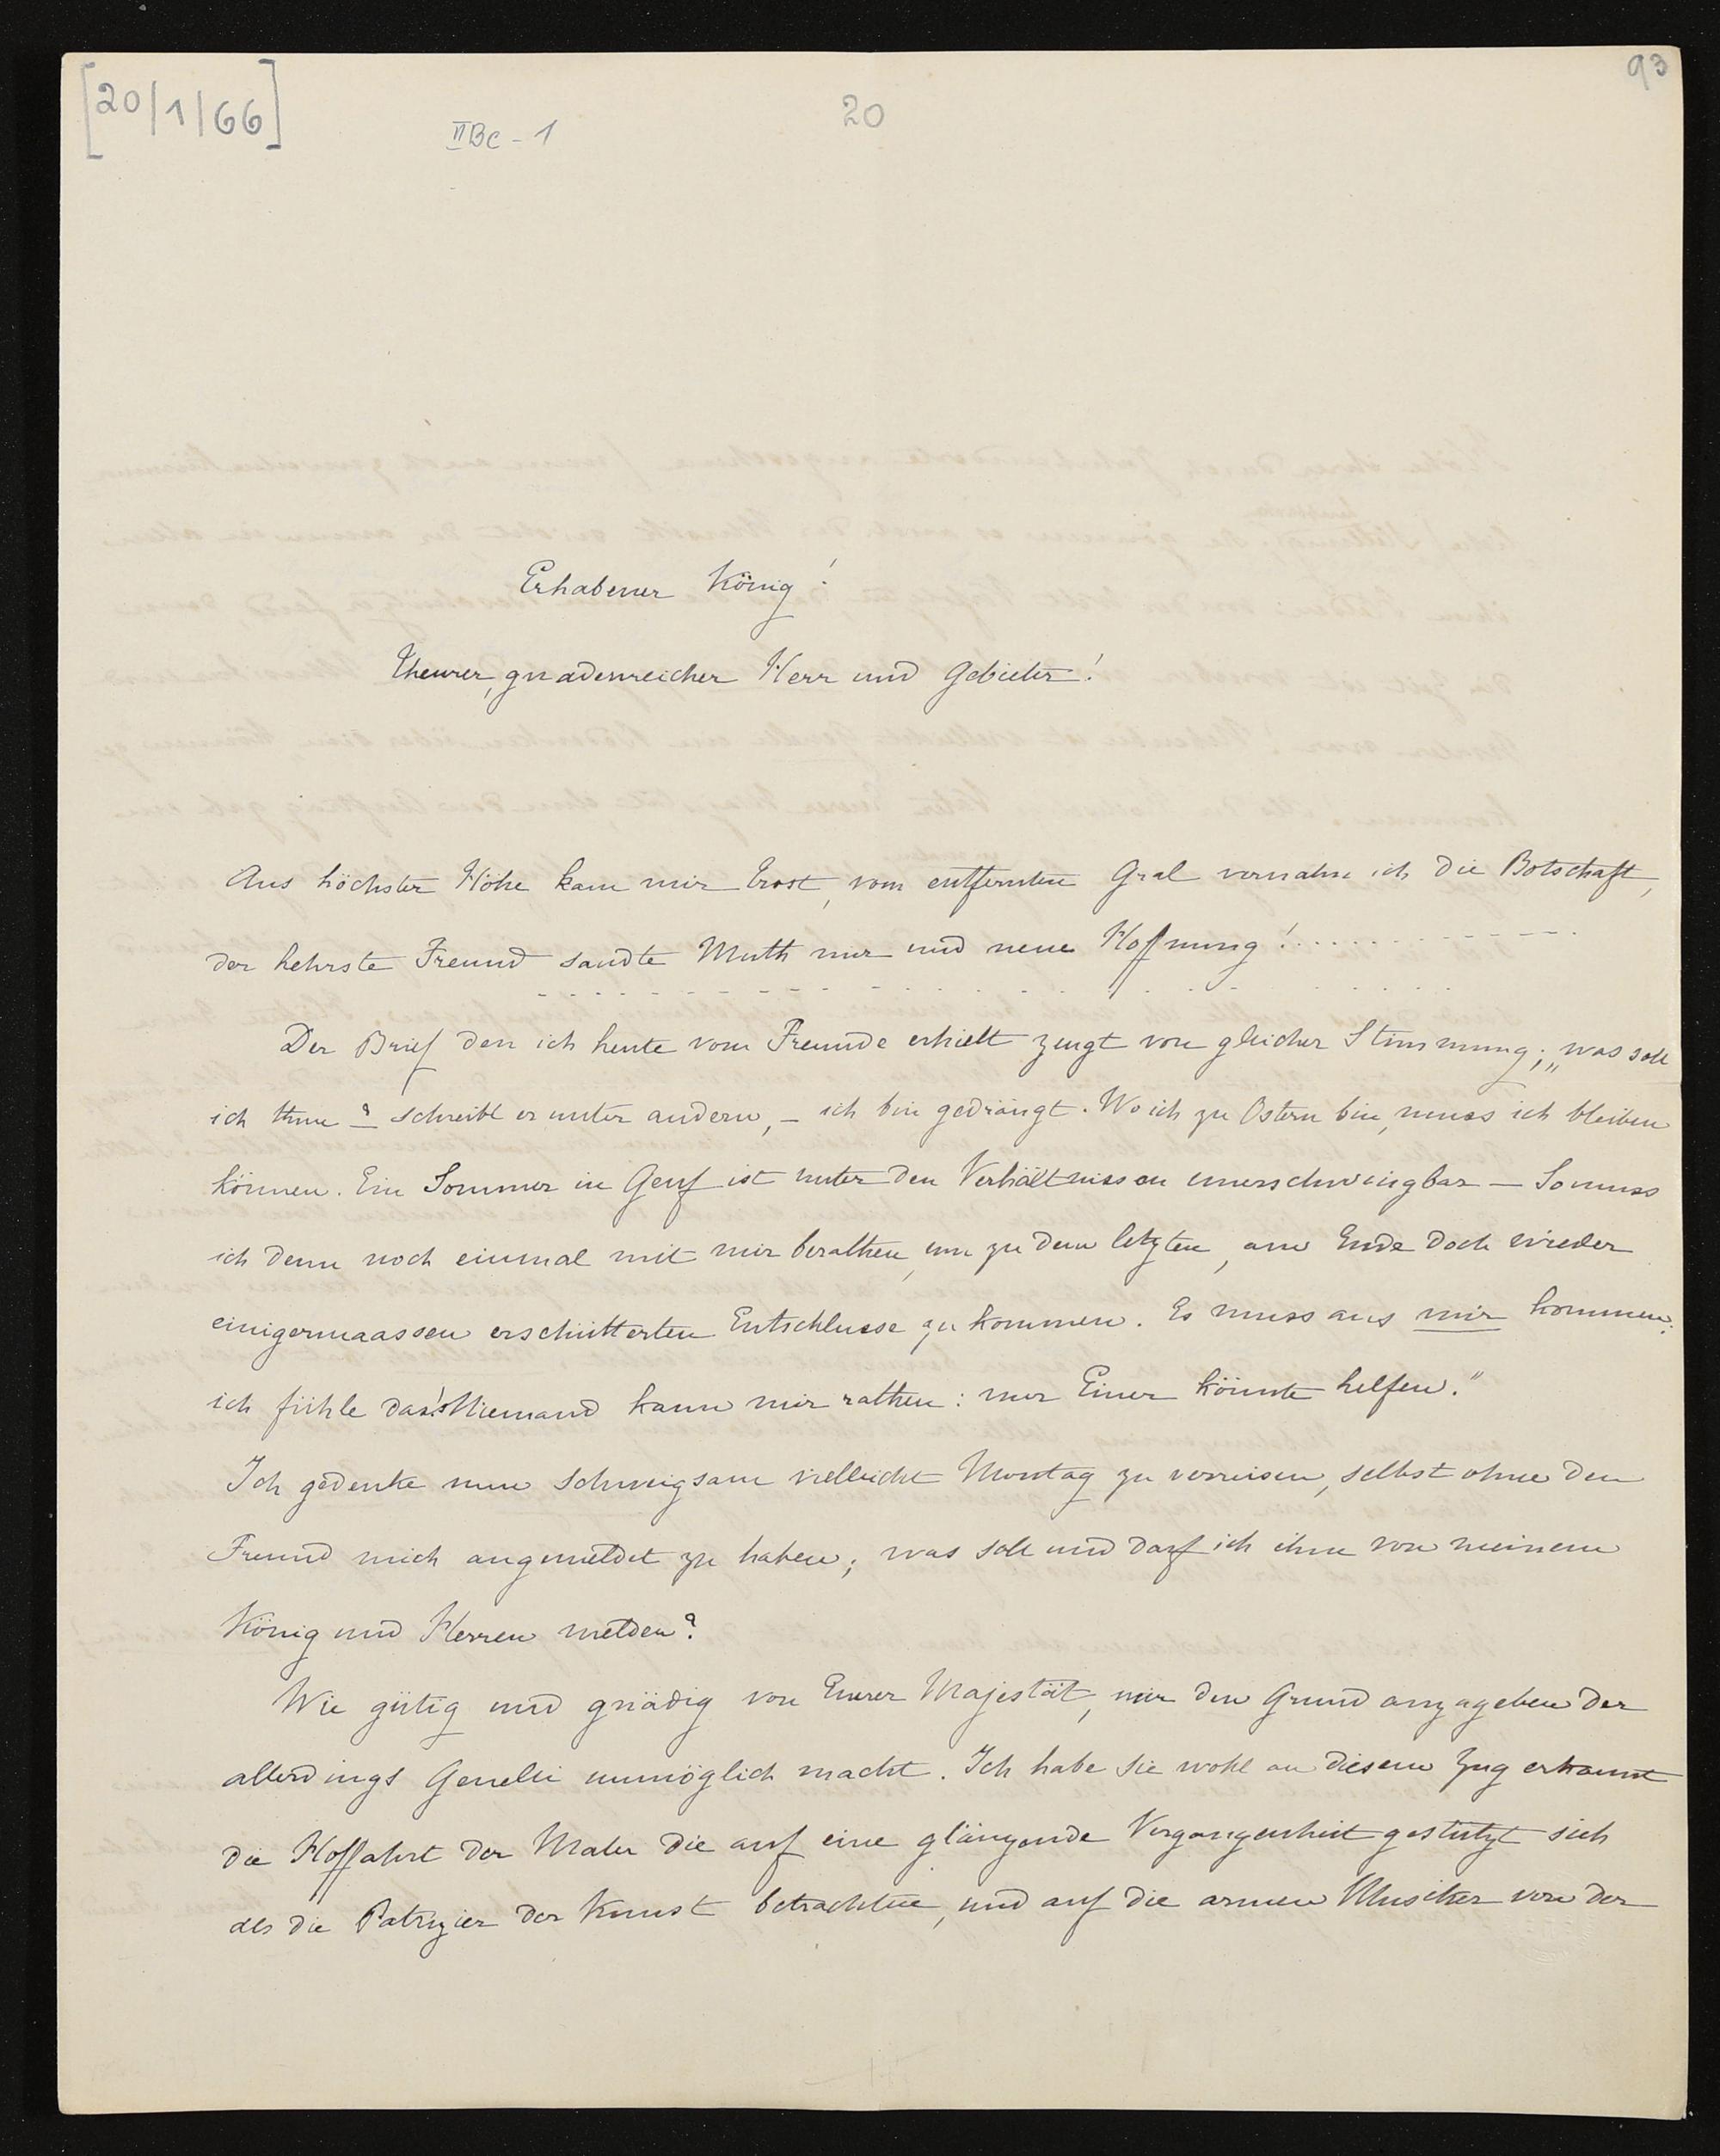 [20/1/66]
IIBc - 1
20
93
Erhabener König!
Theurer, gnadenreicher Herr und Gebieter!
Aus höchster Höhe kam mir Trost, vom entfernten Gral vernahm ich die Botschaft,
der hehrste Freund sandte Muth mir und neue Hoffnung! . . . . . . . . . . . . .
. . . . . . . . . . . . . . . . . . . .
Der Brief den ich heute vom Freunde erhielt zeugt von gleicher Stimmung; „was soll
ich thun? schreibt er unter andern, – ich bin gedrängt. Wo ich zu Ostern bin, muss ich bleiben
können. Ein Sommer in Genf ist unter den Verhältnissen unerschwingbar – So muss
ich denn noch einmal mit mir berathen, um zu dem letzten, am Ende doch wieder
einigermaassen erschütterten Entschlusse zu kommen. Es muss aus mir kommen:
ich fühle das! Niemand kann mir rathen: nur Einer könnte helfen."
Ich gedenke nun schweigsam vielleicht Montag zu verreisen, selbst ohne den
Freund mich angemeldet zu haben; was soll und darf ich ihm von meinem
König und Herren melden?
Wie gütig und gnädig von Eurer Majestät, mir den Grund anzugeben der
allerdings Genelli unmöglich macht. Ich habe sie wohl an diesem Zug erkannt
die Hoffahrt der Maler die auf eine glänzende Vergangenheit gestützt sich
als die Patrizier der Kunst betrachten, und auf die armen Musiker von der